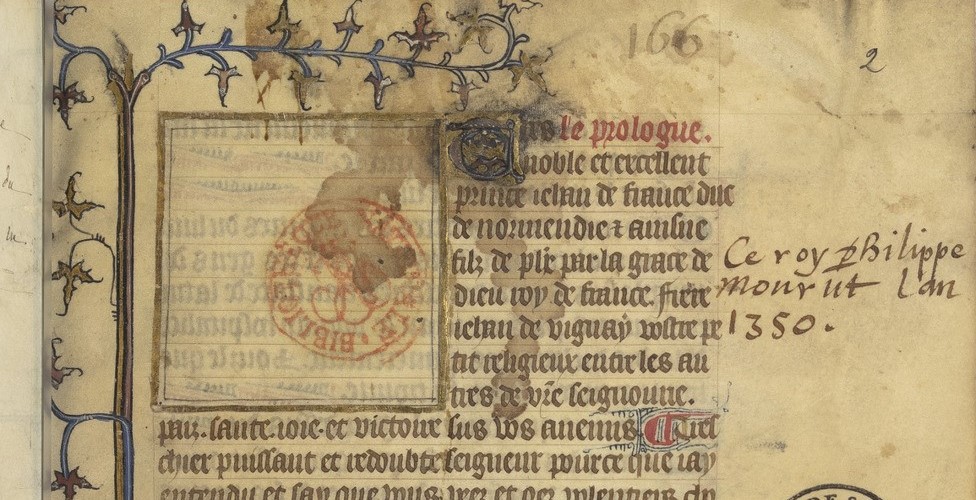 166
2
le prologue.
noble et excellent
prince iehan de france duc
de normendie ⁊ ainsne
filz de phẽ par la grace de
dieu roy de france. frere
iehan de vignay vostre pe
tit religieux entre les au
tres de vr̃e seignourie.
paix. sante. ioie. et victoire sus vos anemis Tres
chier puissant et redoubte seigneur pource que iay
entendu et say que vous veez et oez volentiers
Ce roy philippe
mourut lan
1350.